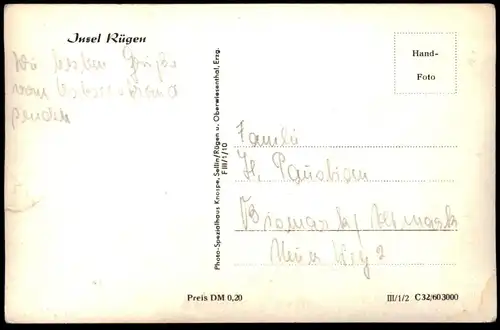 Insel Rügen
Die besten Grüße
vom
sendet
Photo-Spezialhaus Knospe, Sellin/Rügen u. Oberwiesenthal, Erzg.
F III/1/10
Hand-
Foto
Familie
H. Paustian
Bismark / Altmark
Neuer Weg 2
Preis DM 0,20
III/1/2 C 32/60 3000